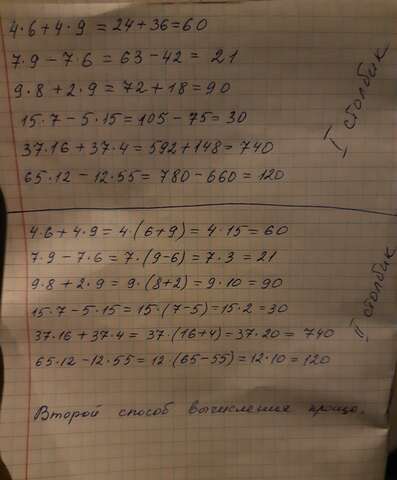 4·6+4·9 = 24+36=60
7·9-7·6 = 63-42 = 21
9·8+2·9 = 72+18 = 90
15·7-5·15=105-75=30
37·16+37·4=592+148=740
65·12-12·55= 780-660=120
I столбик
4·6+4·9 = 4·(6+9) = 4·15=60
7·9-7·6 = 7·(9-6) = 7·3 = 21
9·8+2·9 = 9·(8+2) = 9·10 = 90
15·7-5·15=15·(7-5)=15·2=30
37·16+37·4= 37·(16+4)=37·20= 740
65·12-12·55=12·(65-55)=12·10=120
II столбик
Второй способ вычисления проще.